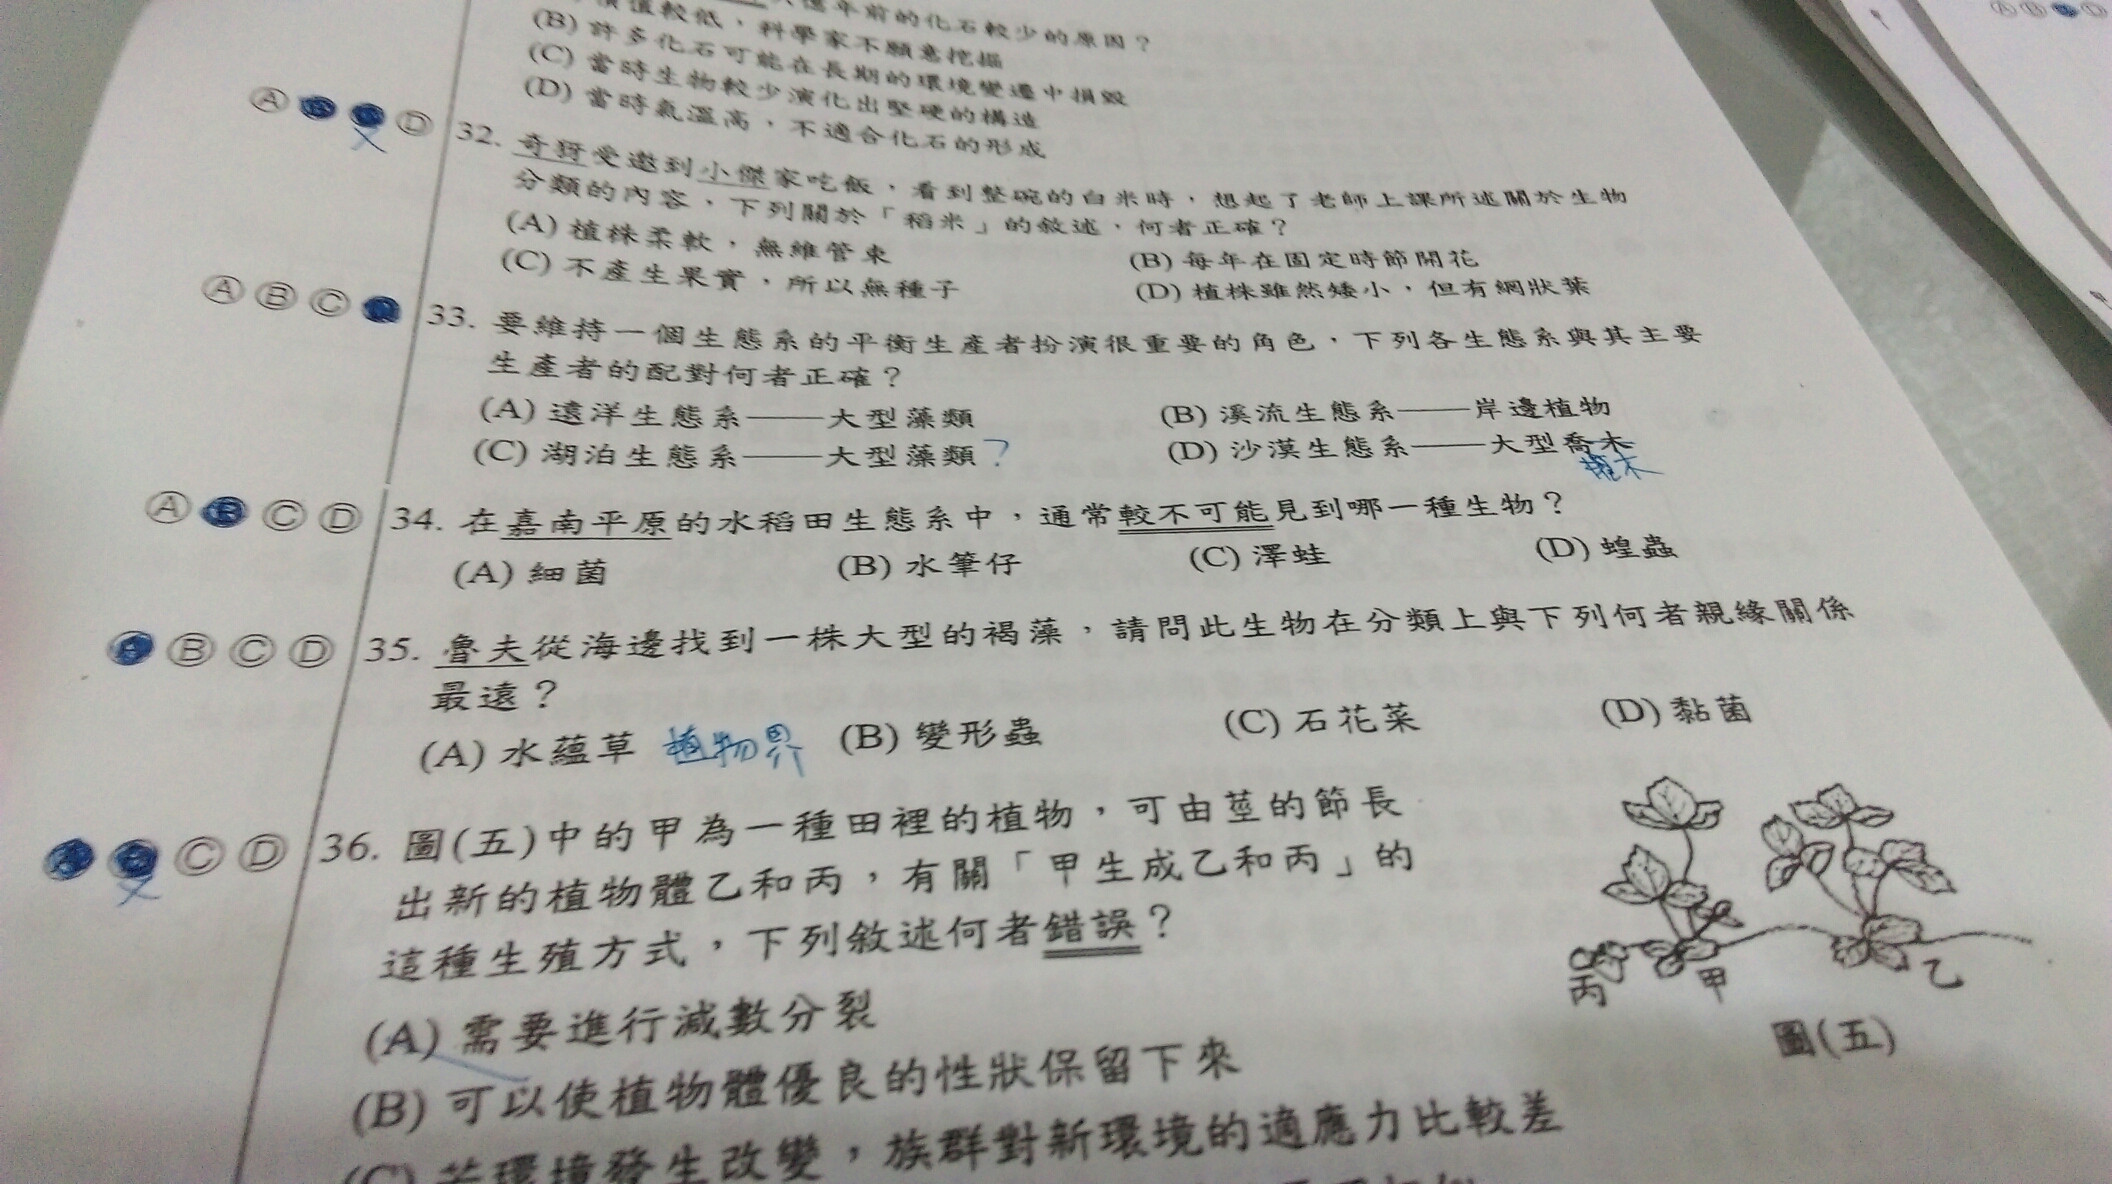 億年前的化石較少的原因？
值較低，科學家不願意挖掘
(B) 許多化石可能在長期的環境變遷中損毀
(C) 當時生物較少演化出堅硬的構造
(D) 當時氣溫高，不適合化石的形成
Ⓐ Ⓓ 32. 奇犽受邀到小傑家吃飯，看到整碗的白米時，想起了老師上課所述關於生物
分類的內容，下列關於「稻米」的敘述，何者正確？
(A) 植株柔軟，無維管束 (B) 每年在固定時節開花
(C) 不產生果實，所以無種子 (D) 植株雖然矮小，但有網狀葉
Ⓐ Ⓑ Ⓒ 33. 要維持一個生態系的平衡生產者扮演很重要的角色，下列各生態系與其主要
生產者的配對何者正確？
(A) 遠洋生態系——大型藻類 (B) 溪流生態系——岸邊植物
(C) 湖泊生態系——大型藻類？ (D) 沙漠生態系——大型喬木
Ⓐ Ⓑ Ⓒ Ⓓ 34. 在嘉南平原的水稻田生態系中，通常較不可能見到哪一種生物？
(A) 細菌 (B) 水筆仔 (C) 澤蛙 (D) 蝗蟲
Ⓐ Ⓑ Ⓒ Ⓓ 35. 魯夫從海邊找到一株大型的褐藻，請問此生物在分類上與下列何者親緣關係
最遠？
(A) 水蘊草 植物界 (B) 變形蟲 (C) 石花菜 (D) 黏菌
Ⓒ Ⓓ 36. 圖(五)中的甲為一種田裡的植物，可由莖的節長
出新的植物體乙和丙，有關「甲生成乙和丙」的
這種生殖方式，下列敘述何者錯誤？
(A) 需要進行減數分裂
(B) 可以使植物體優良的性狀保留下來
(C) 若環境發生改變，族群對新環境的適應力比較差
丙 甲 乙
圖(五)